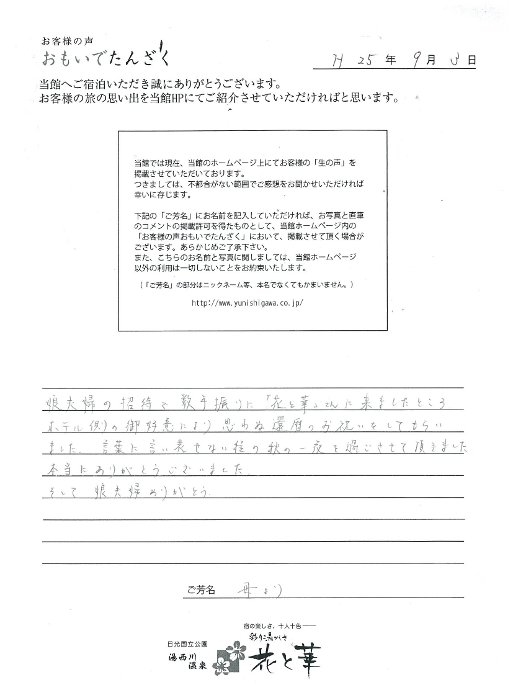 お客様の声
おもいでたんざく
H 25 年 9 月 3 日
当館へご宿泊いただき誠にありがとうございます。
お客様の旅の思い出を当館HPにてご紹介させていただければと思います。
当館では現在、当館のホームページ上にてお客様の「生の声」を
掲載させていただいております。
つきましては、不都合がない範囲でご感想をお聞かせいただければ
幸いに存じます。
下記の「ご芳名」にお名前を記入していただければ、お写真と直筆
のコメントの掲載許可を得たものとして、当館ホームページ内の
「お客様の声おもいでたんざく」において、掲載させて頂く場合が
ございます。あらかじめご了承下さい。
また、こちらのお名前と写真に関しましては、当館ホームページ
以外の利用は一切しないことをお約束いたします。
(「ご芳名」の部分はニックネーム等、本名でなくてもかまいません。)
http://www.yunishigawa.co.jp/
娘夫婦の招待で数年振りに「花と華」さんに来ましたところ
ホテル側の御好意により思わぬ還暦のお祝いをしてもらい
ました 言葉に言い表せない程の秋の一夜を過ごさせて頂きました
本当にありがとうございました
そして 娘夫婦ありがとう
ご芳名 母より
宿の楽しさ、十人十色
日光国立公園
湯西川温泉
花と華